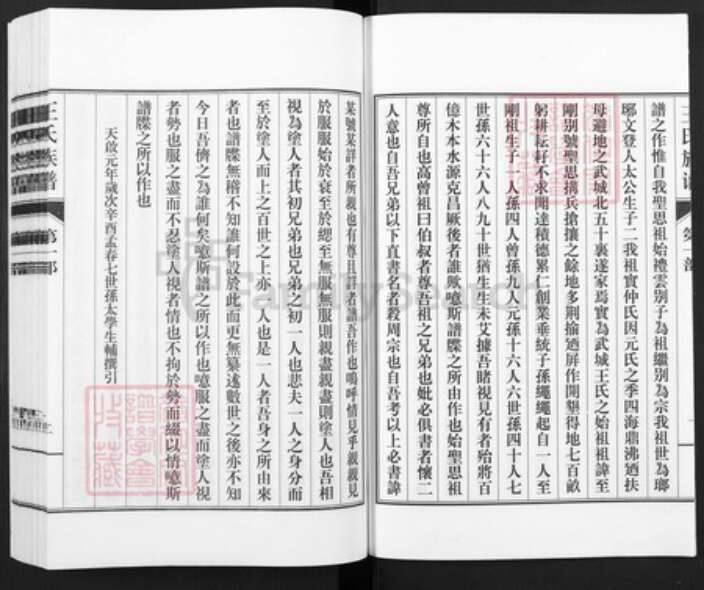 譜之作惟自我聖思祖始禮雲別子為祖繼別為宗我祖世為瑯
琊文登人太公生子二我祖實仲氏因元氏之季四海鼎沸迺扶
母避地之武城北五十裏遂家焉實為武城王氏之始祖祖諱至
剛別號聖思搆兵搶攘之餘地多荆揄迺屏作開墾得地七百畝
躬耕耘耔不求聞達積德累仁創業垂統子孫繩繩起自一人至
剛祖生子一人孫四人曾孫九人元孫十六人六世孫四十人七
世孫六十六人八九十世猶生生未艾據吾睹視見有者殆將百
億木本水源克昌厥後者誰歟噫斯譜牒之所由作也始聖思祖
尊所自也高曾祖曰伯叔者尊吾祖之兄弟也妣必俱書者懷二
人意也自吾兄弟以下直書名者殺周宗也自吾考以上必書諱
某號某詳者所親也有尊且詳者譜吾作也嗚呼情見乎親親見
於服服始於衰至於緦至無服無服則親盡親盡則塗人也吾相
視為塗人者其初兄弟也兄弟之初一人也悲夫一人之身分而
至於塗人而上之百世之上亦一人也是一人者吾身之所由來
者也譜牒無稽不知誰何設於此而更無纂述數世之後亦不知
今日吾儕之為誰何矣噫斯譜之所以作也噫服之盡而塗人視
者勢也服之盡而不忍塗人視者情也不拘於勢而綴以情噫斯
譜牒之所以作也
天啟元年歲次辛酉孟春七世孫太學生輔撰引
王氏族譜
第一部
FamilySearch